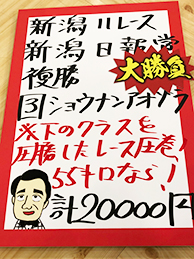 新潟11レース
新潟日報賞
複勝
大勝負
③ショウナンアオゾラ
米下のクラスを
圧勝したレース圧巻!
55キロなら!
計20000円